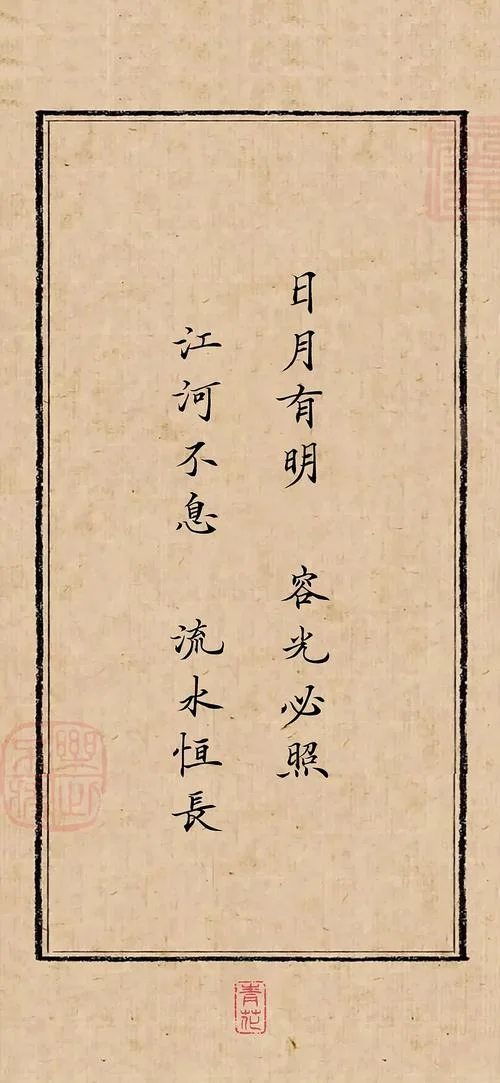 日月有明 容光必照
江河不息 流水恒長
青花